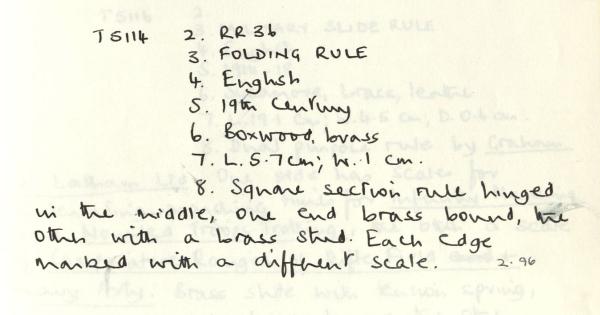 TS114 2. RR36
3. FOLDING RULE
4. English
5. 19th Century
6. Boxwood, brass
7. L. 5.7cm; W. 1 cm.
8. Square section rule hinged
in the middle, one end brass bound, the
other with a brass stud. Each edge
marked with a different scale. 2.96